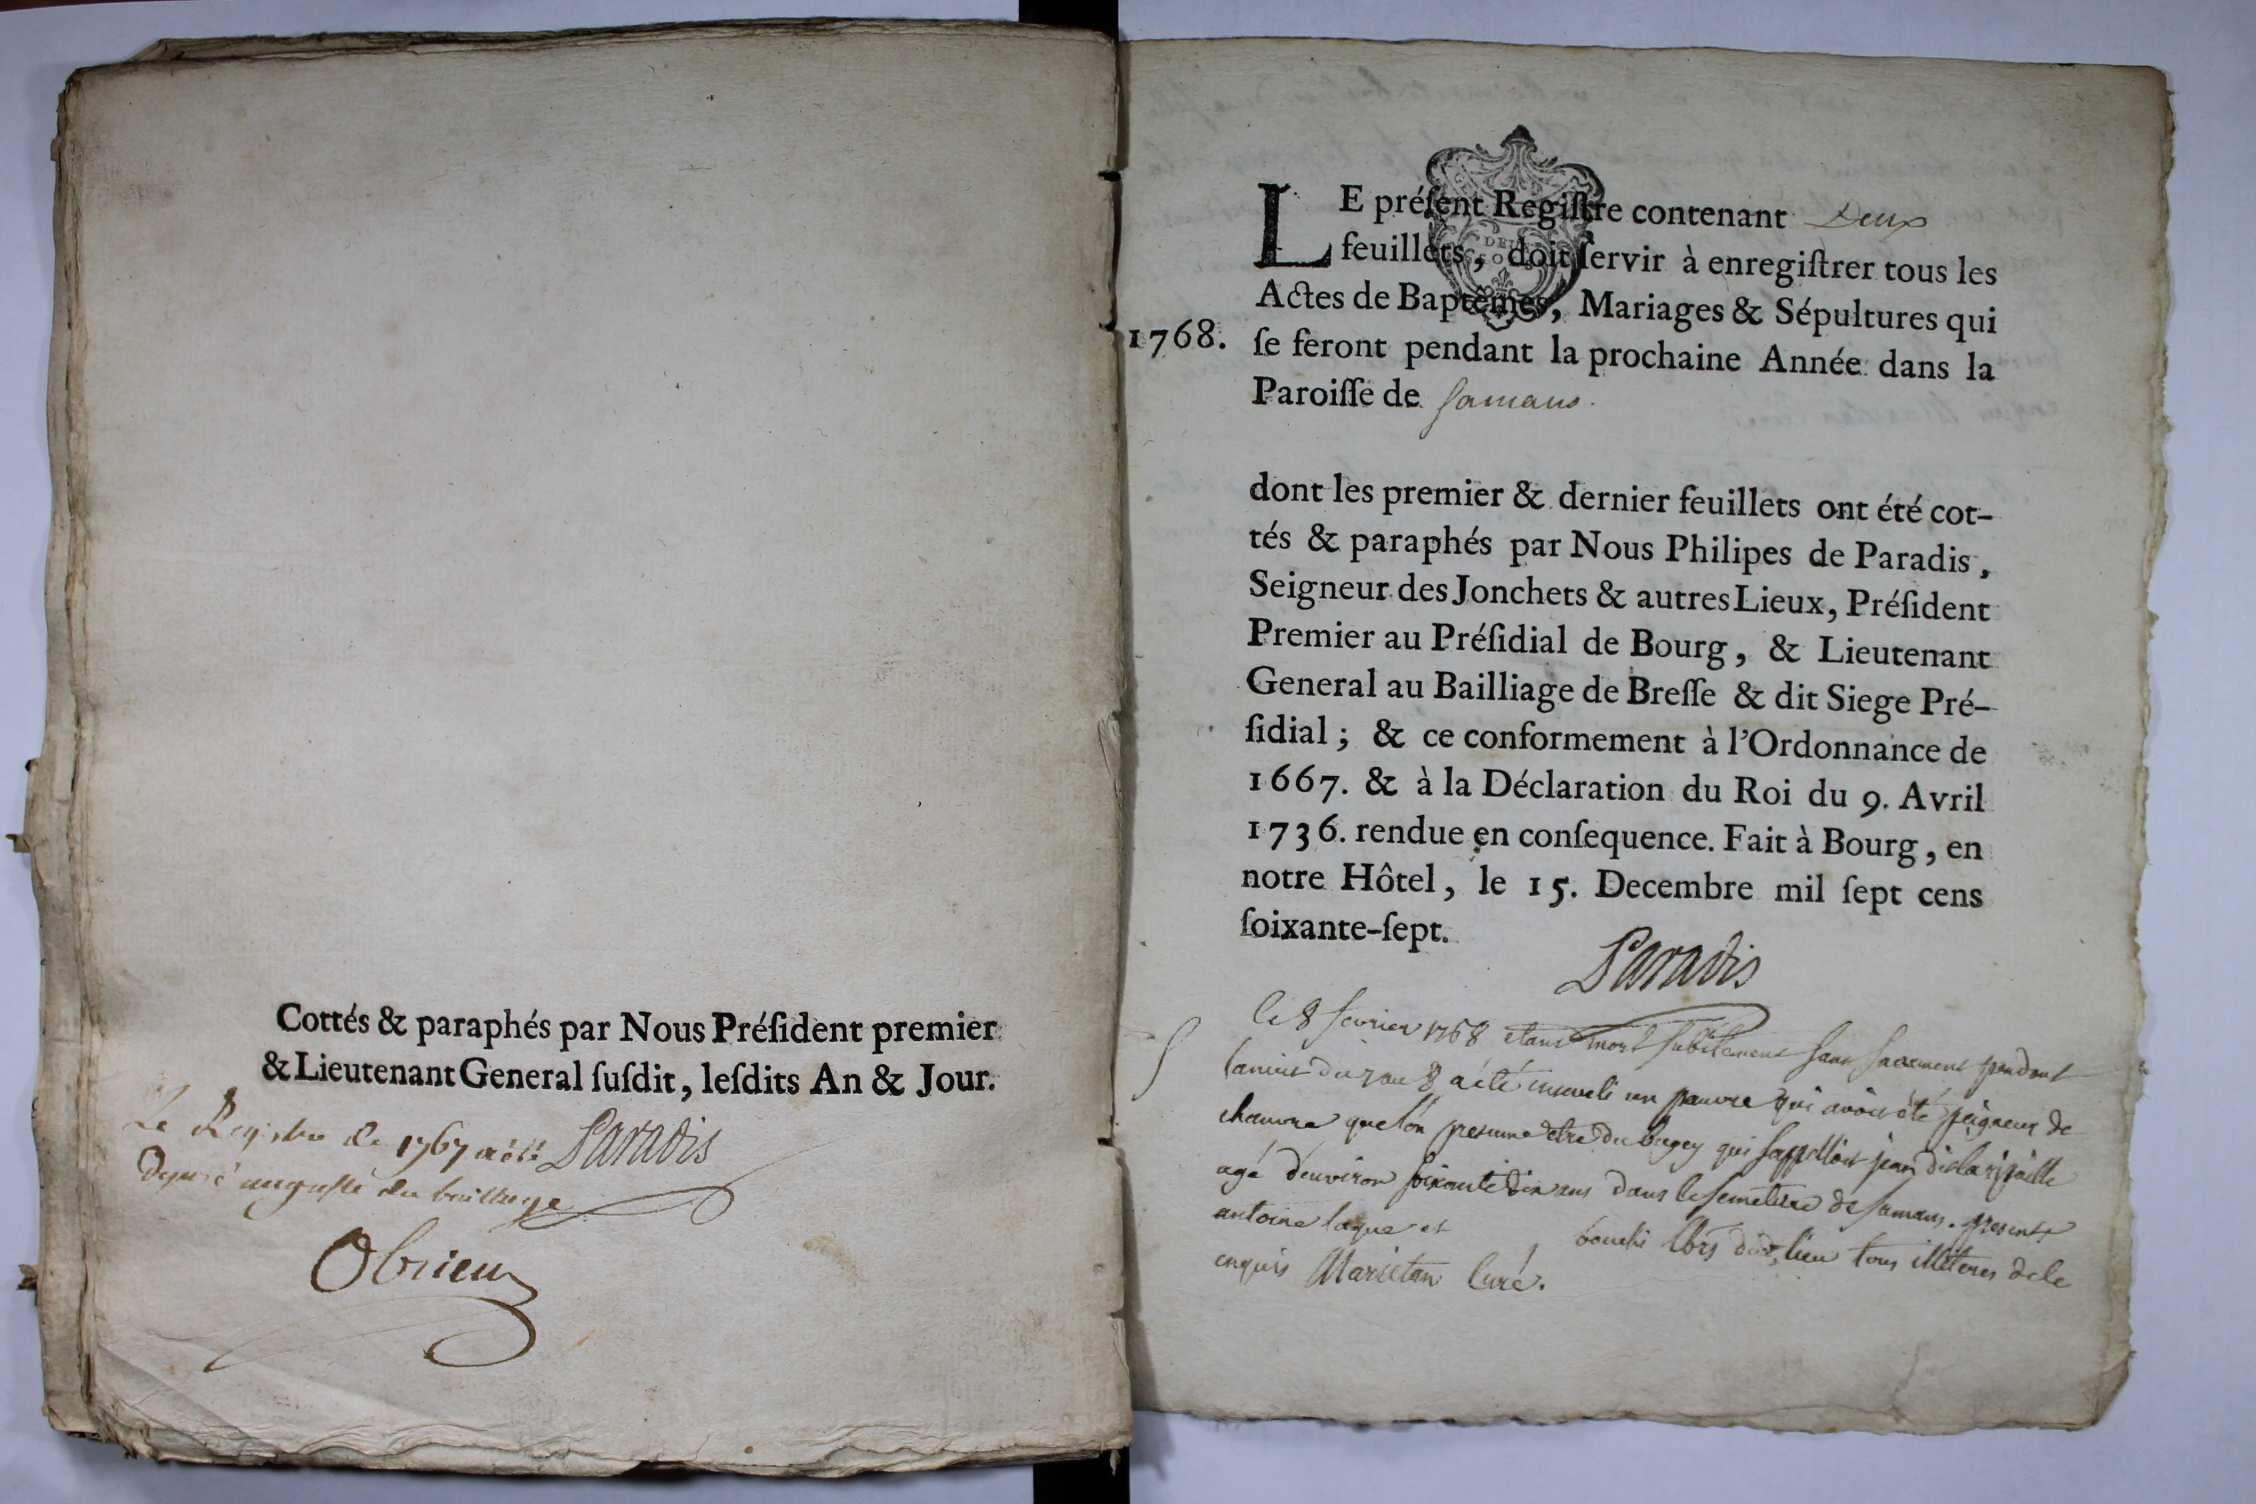 Cottés & paraphés par Nous Préſident premier
& Lieutenant General ſuſdit, leſdits An & Jour.
Le Registre de 1767 a été
Paradis
Deposé au greffe du bailliage
Obrien
LE préſent Regiſtre contenant Deux
feuillets, doit ſervir à enregiſtrer tous les
Actes de Baptêmes, Mariages & Sépultures qui
1768. ſe feront pendant la prochaine Année dans la
Paroiſſe de Samans.
dont les premier & dernier feuillets ont été cot-
tés & paraphés par Nous Philipes de Paradis,
Seigneur des Jonchets & autres Lieux, Préſident
Premier au Préſidial de Bourg, & Lieutenant
General au Bailliage de Breſſe & dit Siege Pré-
ſidial; & ce conformement à l'Ordonnance de
1667. & à la Déclaration du Roi du 9. Avril
1736. rendue en conſequence. Fait à Bourg, en
notre Hôtel, le 15. Decembre mil ſept cens
ſoixante-ſept.
Paradis
S
le 8 fevrier 1768 etant mort subitement sans sacrement pendant
la nuit du 7 au 8 a été enseveli un pauvre qui avoit été peigneur de
chanvre que l'on presume etre du bugey qui s'appelloit jean dit
agé d'environ soixante dix ans dans le semetiere de Samans. presents
antoine et bouchi lbrs dud. lieu tous illiteres de ce
enquis Marietan Curé.